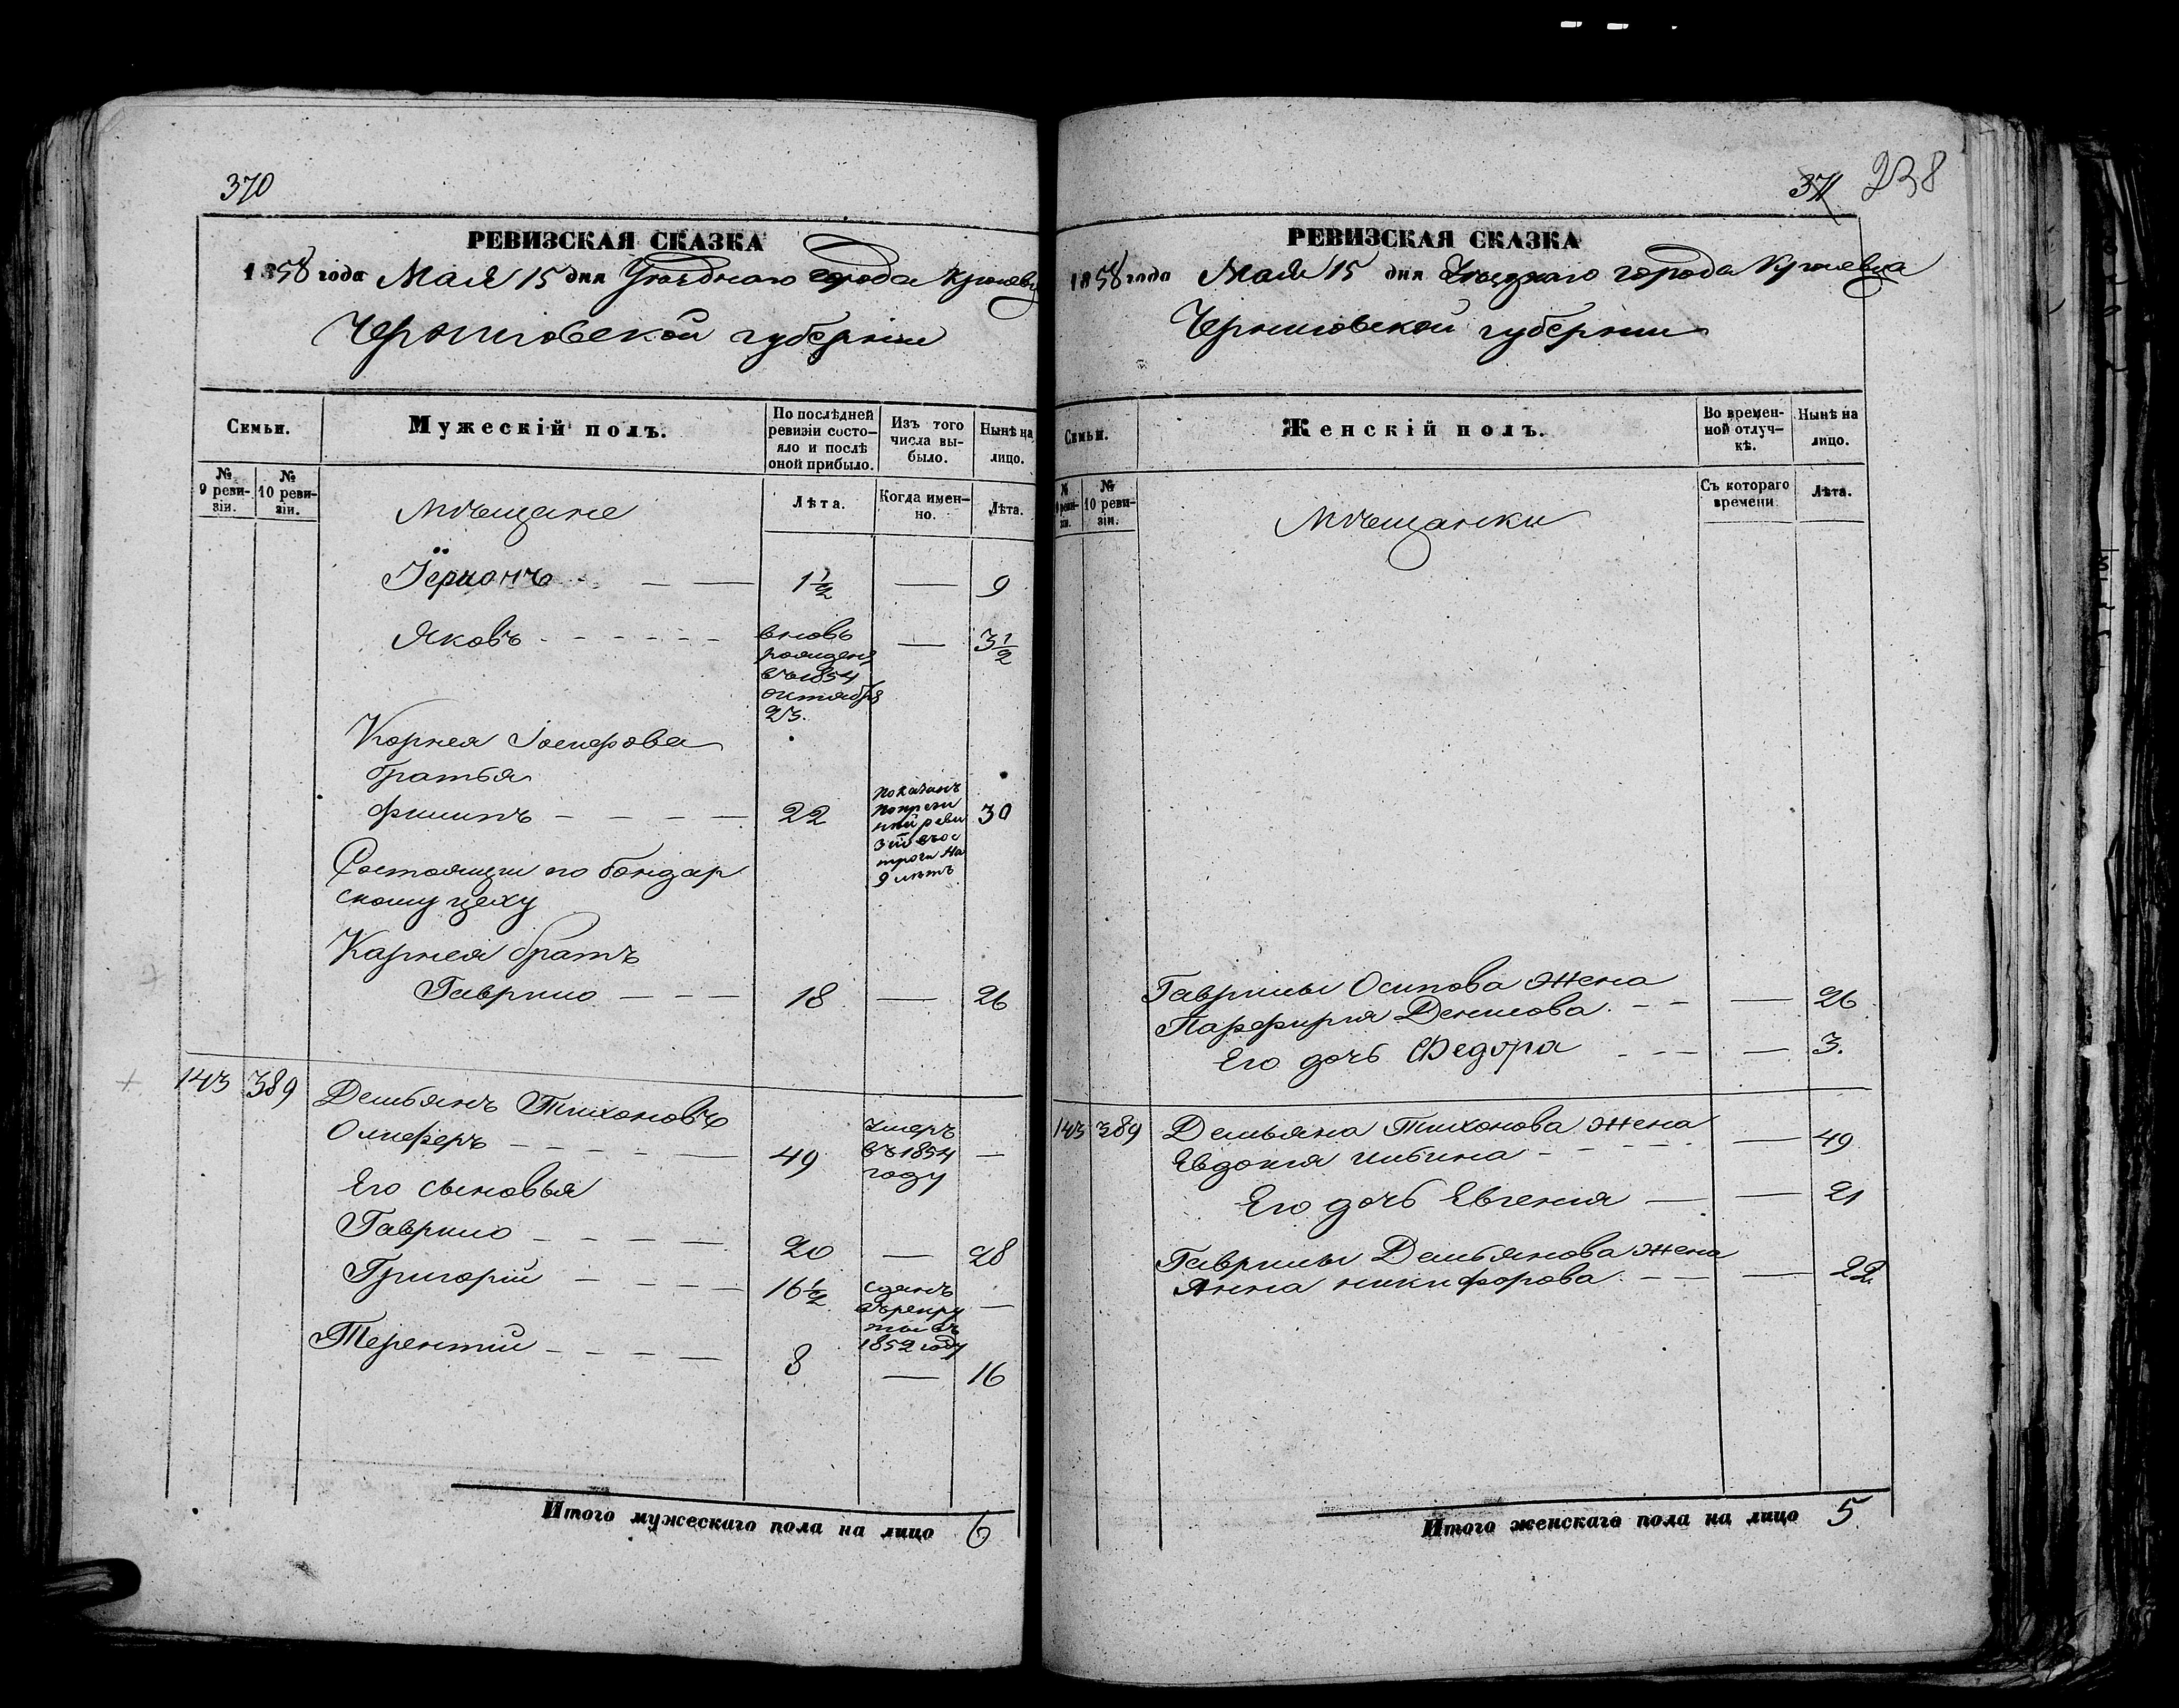 370
РЕВИЗСКАЯ СКАЗКА
1858 года Мая 15 дня Уѣзднаго города Кролевца
Черниговской губерніи
Семьи.
Мужескій полъ.
По послѣдней ревизіи состо-
яло и послѣ
оной прибыло.
Изъ того
числа вы-
было.
Нынѣ на
лицо.
№
9 реви-
зіи.
№
10 реви-
зіи.
Мѣщане
Лѣта.
Когда имен-
но.
Лѣта.
1 1/2 — 9
Яковъ — 3 1/2
вновь
рожденъ
въ 1854
октября
23.
Корнея Іосифова
братья
Филипъ 22 30
показанъ
ревизіи
на
9 лѣтъ
Состоящіи по бондар
скому цеху
Карнея братъ
Гаврило 18 — 26
143 389 Демьянъ Тихоновъ
Олиферъ 49 —
умеръ
въ 1854
году
Его сыновья
Гаврило 20 — 28
Григорій 16 1/2 —
сданъ
въ рекру
ты въ
1852 году
Терентій 8 — 16
Итого мужескаго пола на лицо 6
371 238
РЕВИЗСКАЯ СКАЗКА
1858 года Мая 15 дня Уѣзднаго города Кролевца
Черниговской губерніи
Семьи.
Женскій полъ.
Во времен-
ной отлуч-
кѣ.
Нынѣ на
лицо.
№
9 реви-
зіи.
№
10 реви-
зіи.
Мѣщанки
Съ котораго
времени.
Лѣта.
Гаврилы Осипова жена
Парфирія Денисова — 26
Его дочь Федора — 3.
143 389 Демьяна Тихонова жена
Евдокія Ильина — 49
Его дочь Евгенія — 21
Гаврилы Демьянова жена
Анна Никифорова — 22
Итого женскаго пола на лицо 5